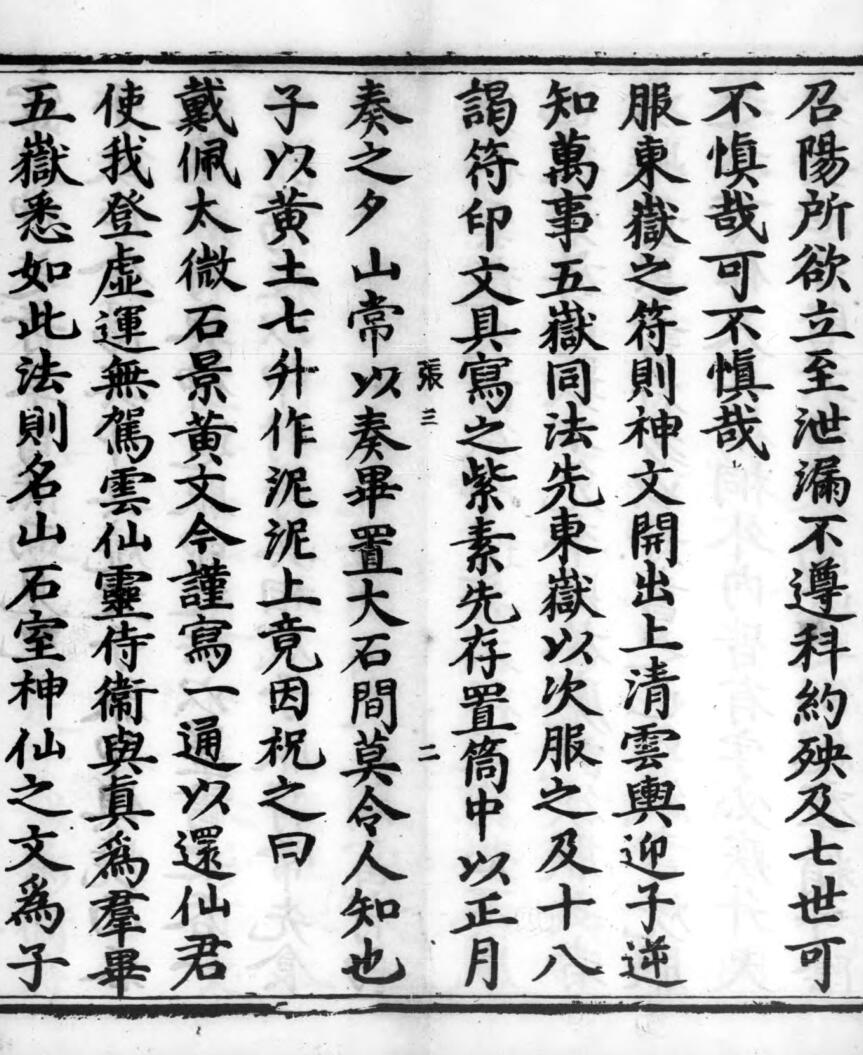 召陽所欲立至泄漏不遵科約殃及七世可
不慎哉可不慎哉
服東嶽之符則神文開出上清雲輿迎子逆
知萬事五嶽同法先東嶽以次服之及十八
謁符印文具寫之紫素先存置筒中以正月
張三 二
奏之夕山常以奏畢置大石間莫令人知也
子以黃土七升作泥泥上竟因祝之曰
戴佩太微石景黃文今謹寫一通以還仙君
使我登虛運無駕雲仙靈侍衛與真為羣畢
五嶽悉如此法則名山石室神仙之文為子